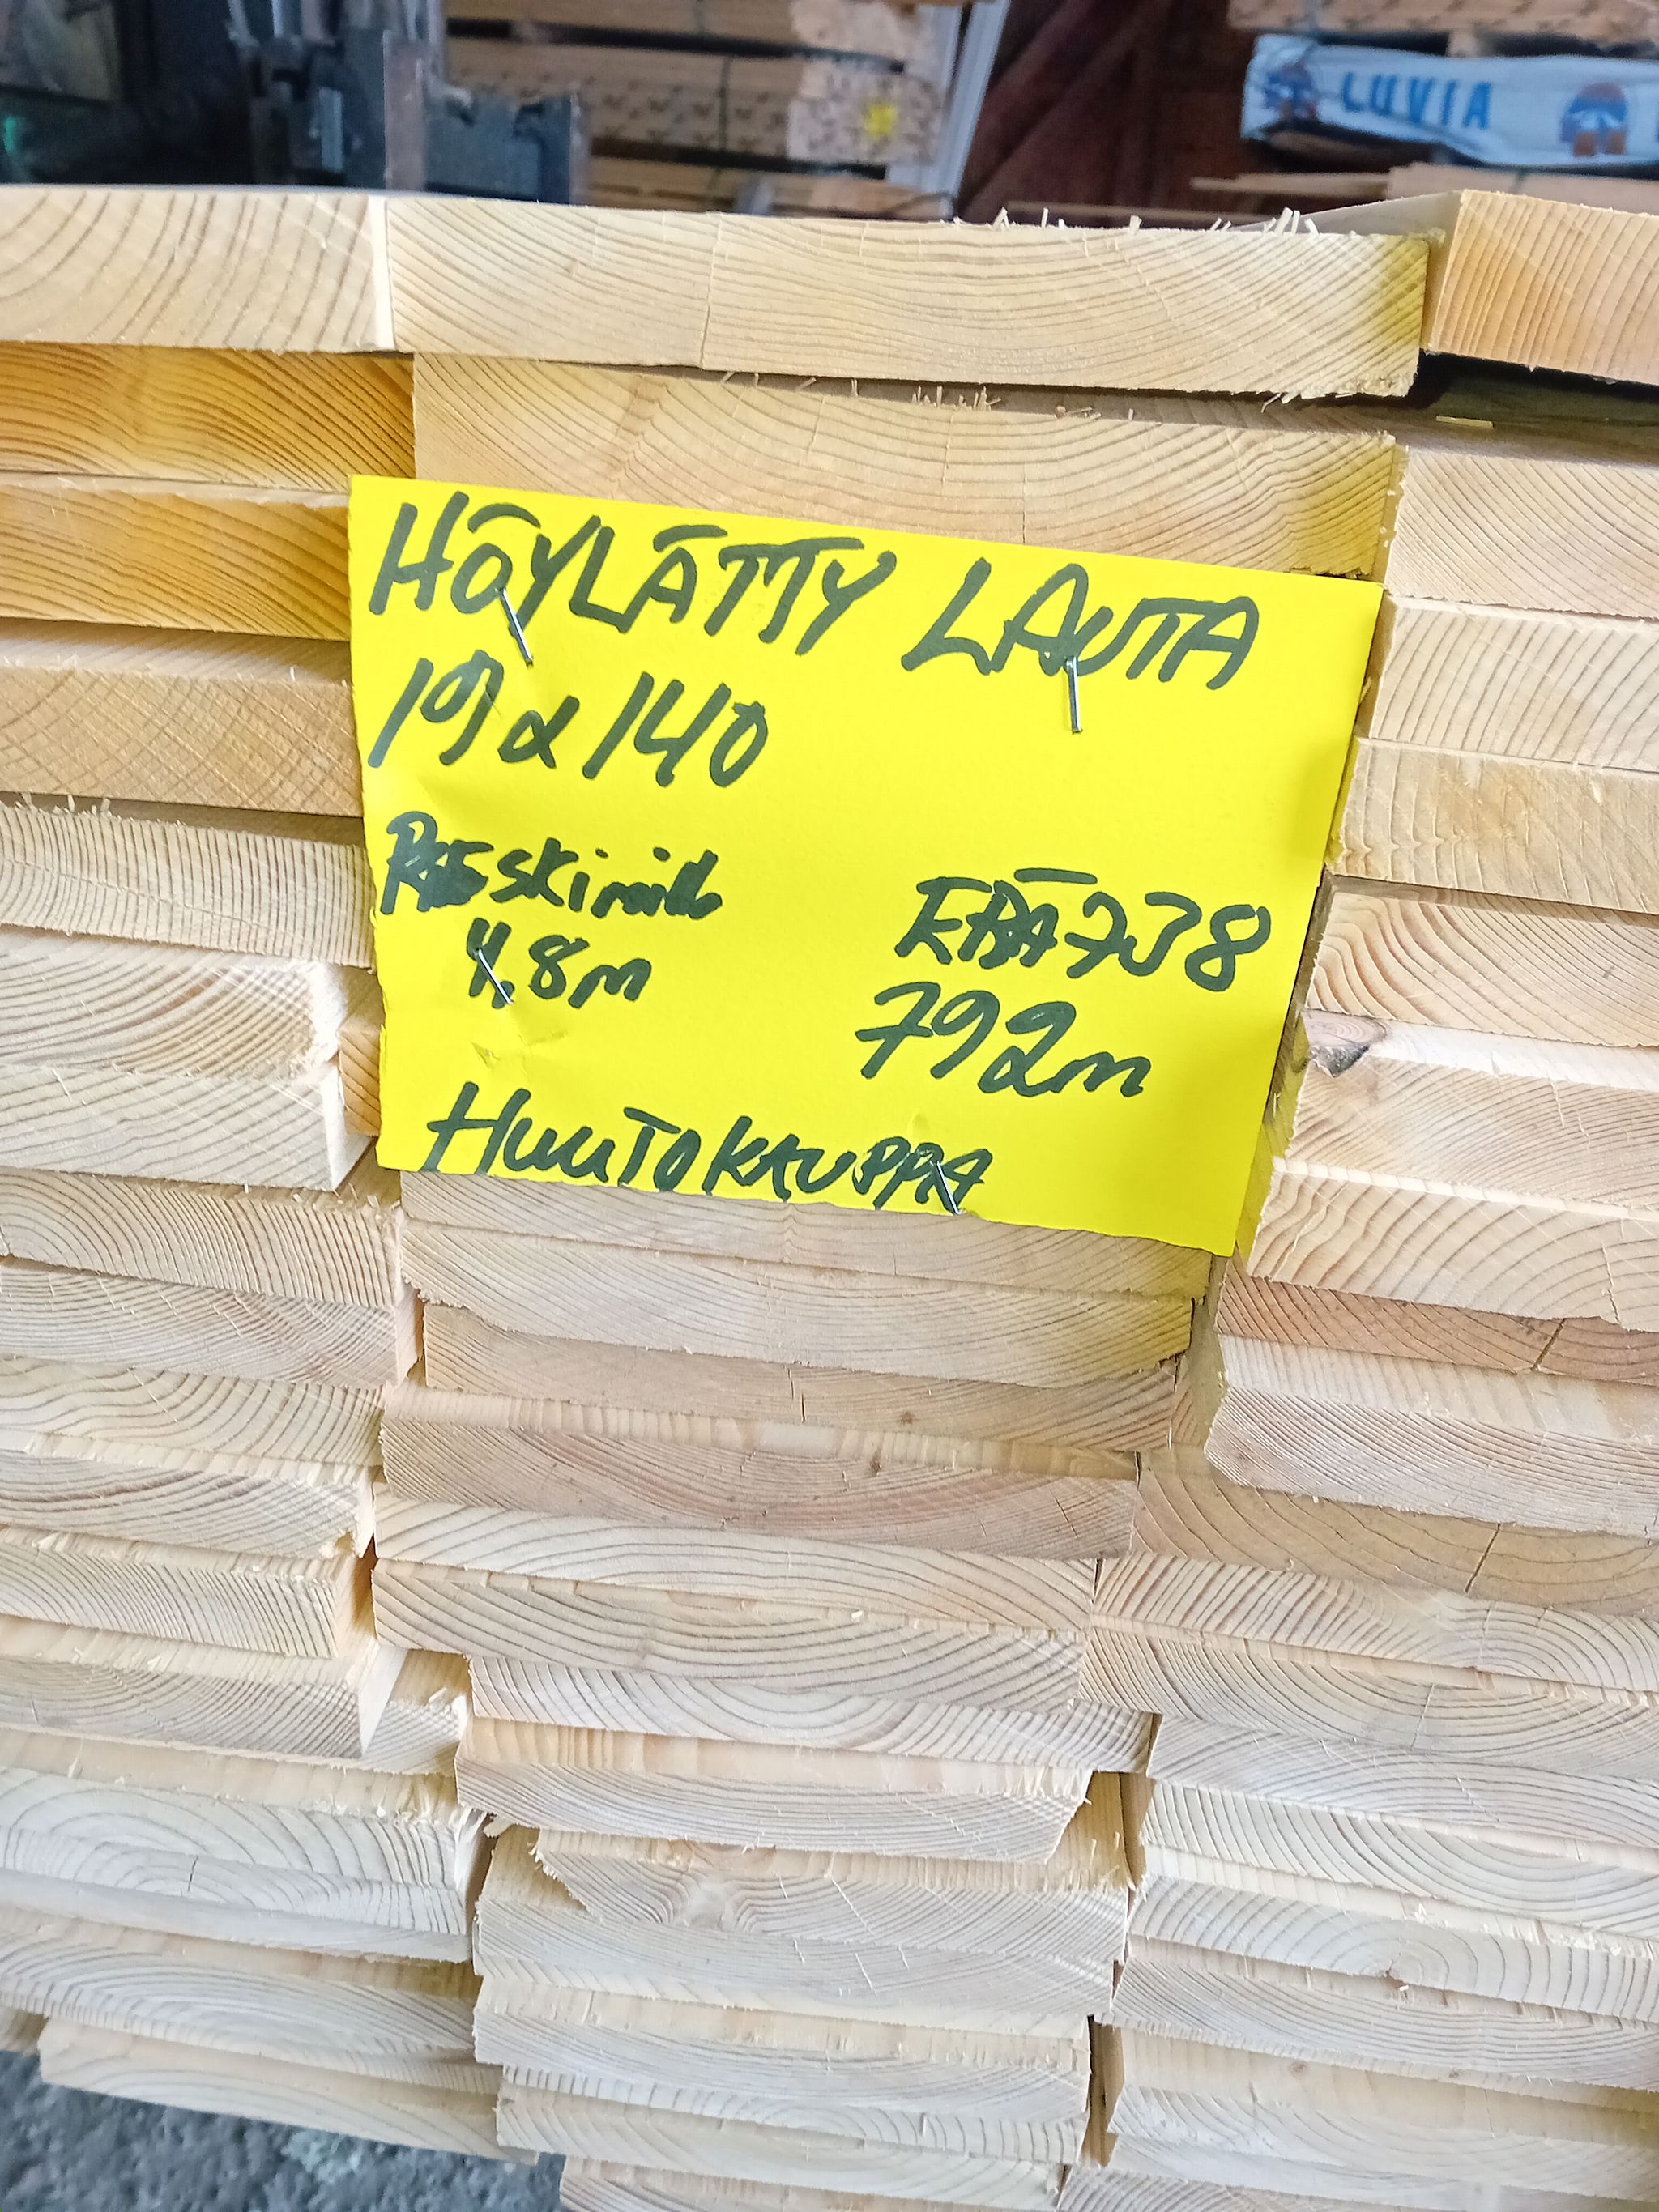 LUVIA
HÖYLÄTTY LAUTA
19x140
Keskimitta
4,8m
ERÄ 738
792m
HUUTOKAUPPA